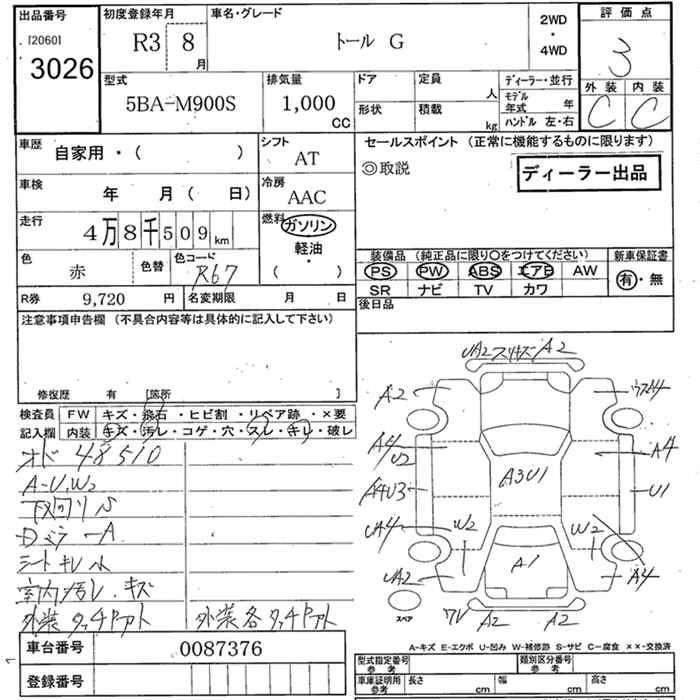 出品番号
[2060]
3026
初度登録年月
R3 8
月
車名・グレード
トール G
2WD
・
4WD
評価点
3
外装 内装
C C
型式
5BA-M900S
排気量
1,000
CC
ドア 定員
人
ディーラー・並行
モデル年式 年
形状 積載
kg
ハンドル 左・右
車歴
自家用・( )
シフト
AT
セールスポイント (正常に機能するものに限ります)
◎取説
ディーラー出品
車検
年 月( 日)
冷房
AAC
走行
4万8千509km
燃料
ガソリン
軽油
( ・ )
色
赤
色替
色コード
R67
装備品 (純正品に限り○をつけてください)
PS PW ABS エアB AW
SR ナビ TV カワ
新車保証書
有・無
R券 9,720 円 名変期限 月 日
後日品
注意事項申告欄 (不具合内容等は具体的に記入して下さい)
修復歴 有 [箇所 ]
検査員
記入欄
FW キズ・飛石・ヒビ割・リペア跡・×要
内装 キズ・汚レ・コゲ・穴・スレ・キレ・破レ
オド 48510
A-U,W2
下回りS
シートキレ小
室内汚レ.キズ
外装タッチPアト 外装各タッチPアト
UA2スリキズA2
A2
A4
U2
A4
A4U3
A3U1
U1
UA4
W2
W2
A1
UA2
A4
スペア
A2 A2
A-キズ E-エクボ U-凹み W-補修跡 S-サビ C-腐食 ××-交換済
車台番号 0087376
登録番号
型式指定番号
参考
類別区分番号
参考
車庫証明用
参考
長さ cm 幅 cm 高さ cm